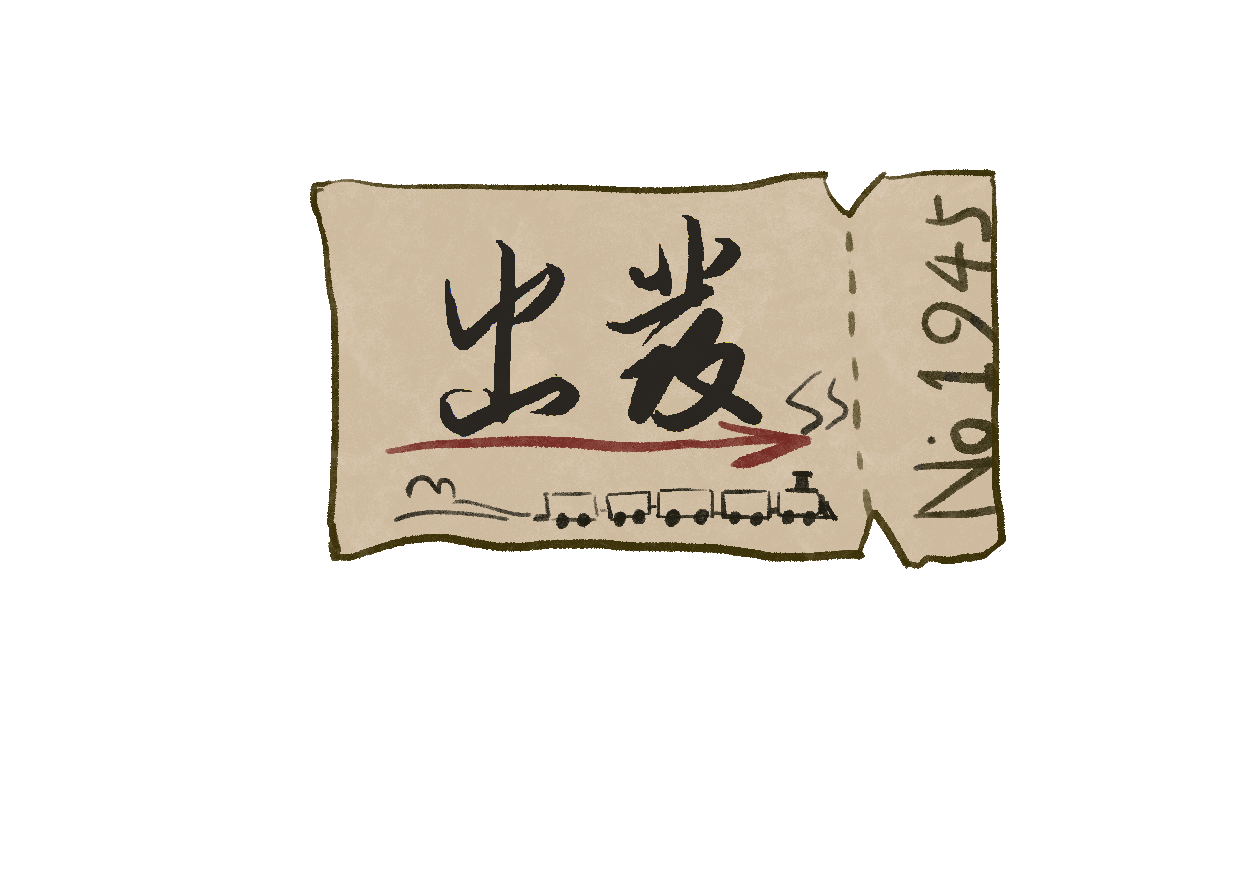 出發
No 1945